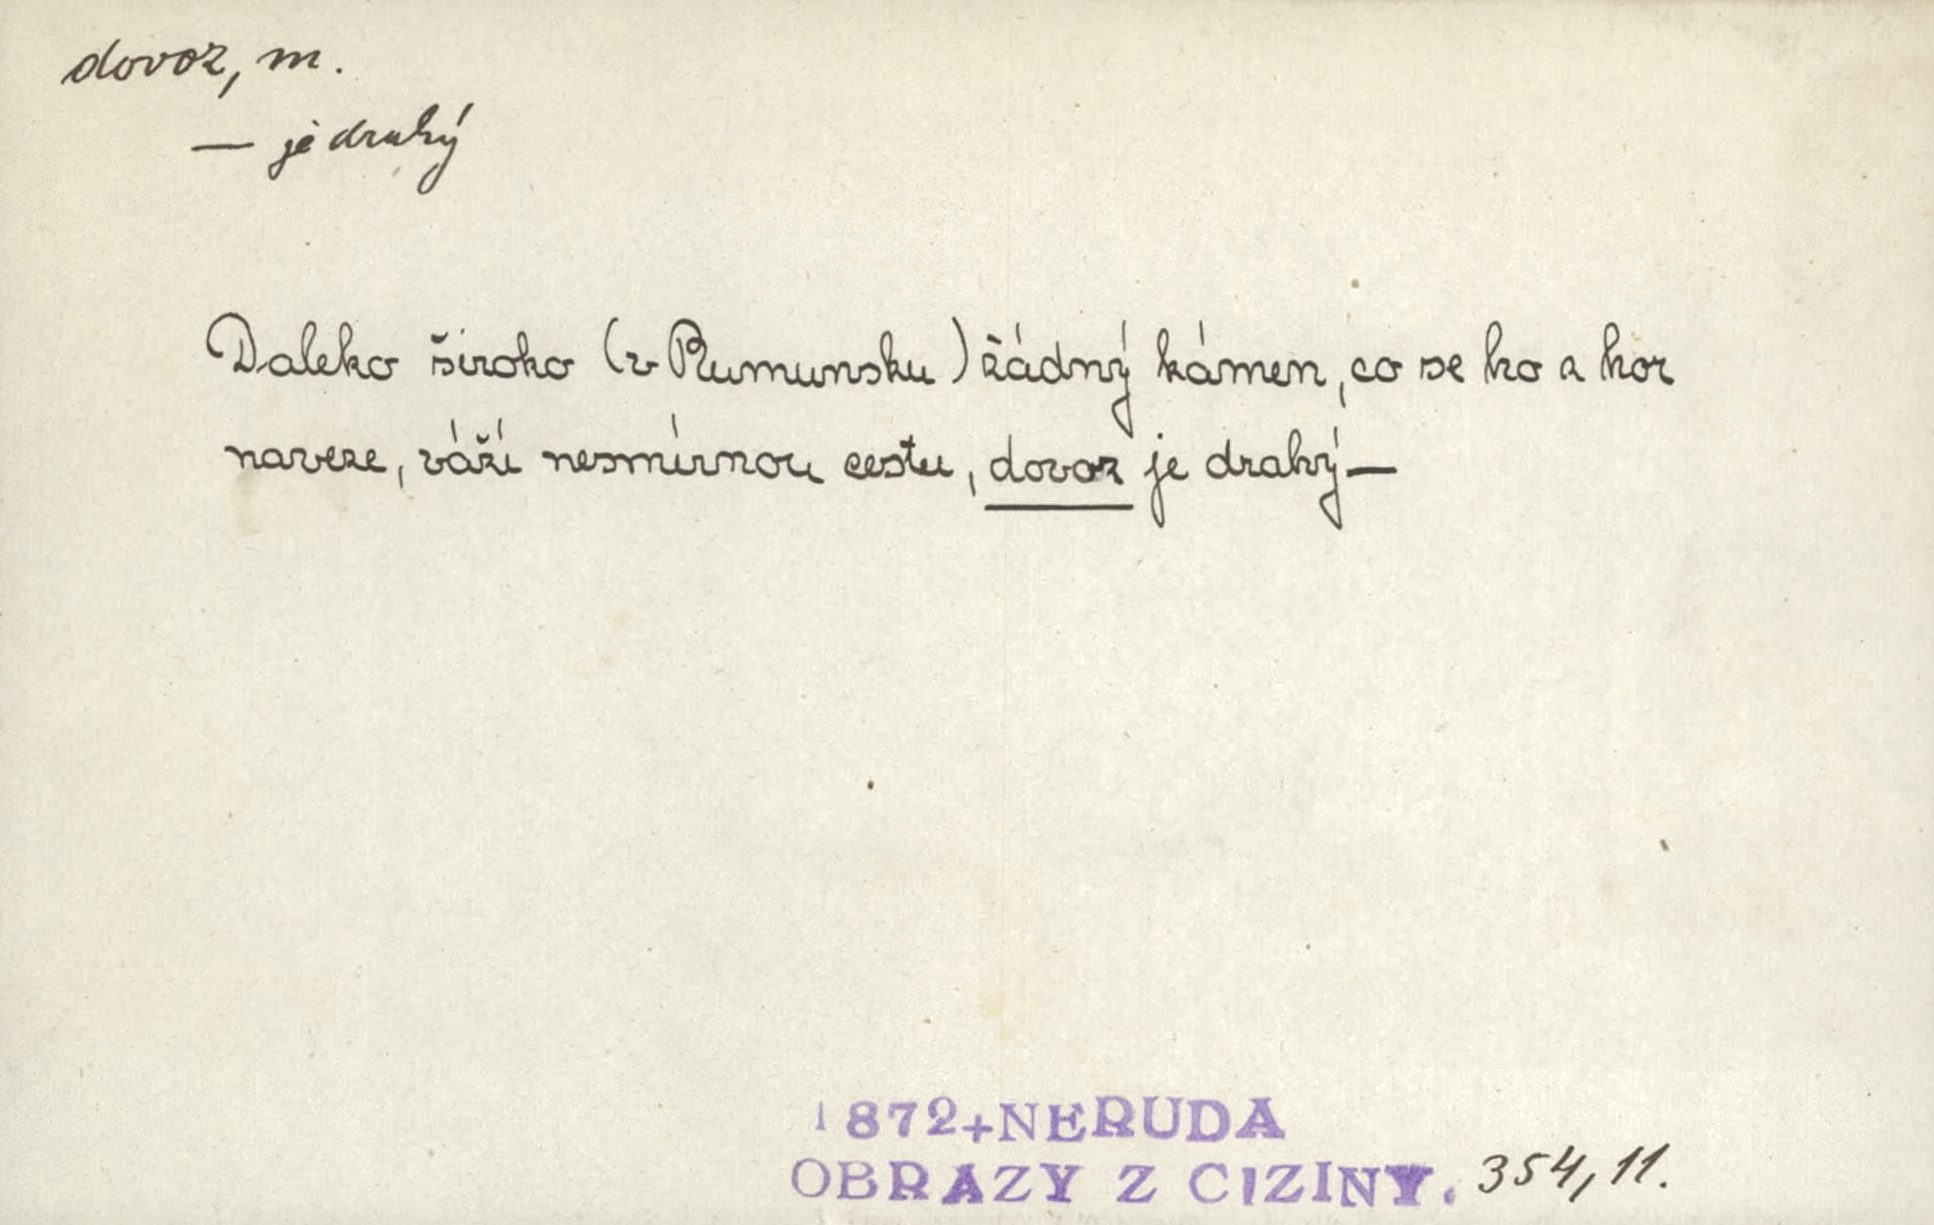 dovoz, m.
— je drahý
Daleko široko (v Rumunsku) žádný kámen, co se ho z hor
naveze, váží nesmírnou cestu, dovoz je drahý —
1872+NERUDA
OBRAZY Z CIZINY. 354, 11.